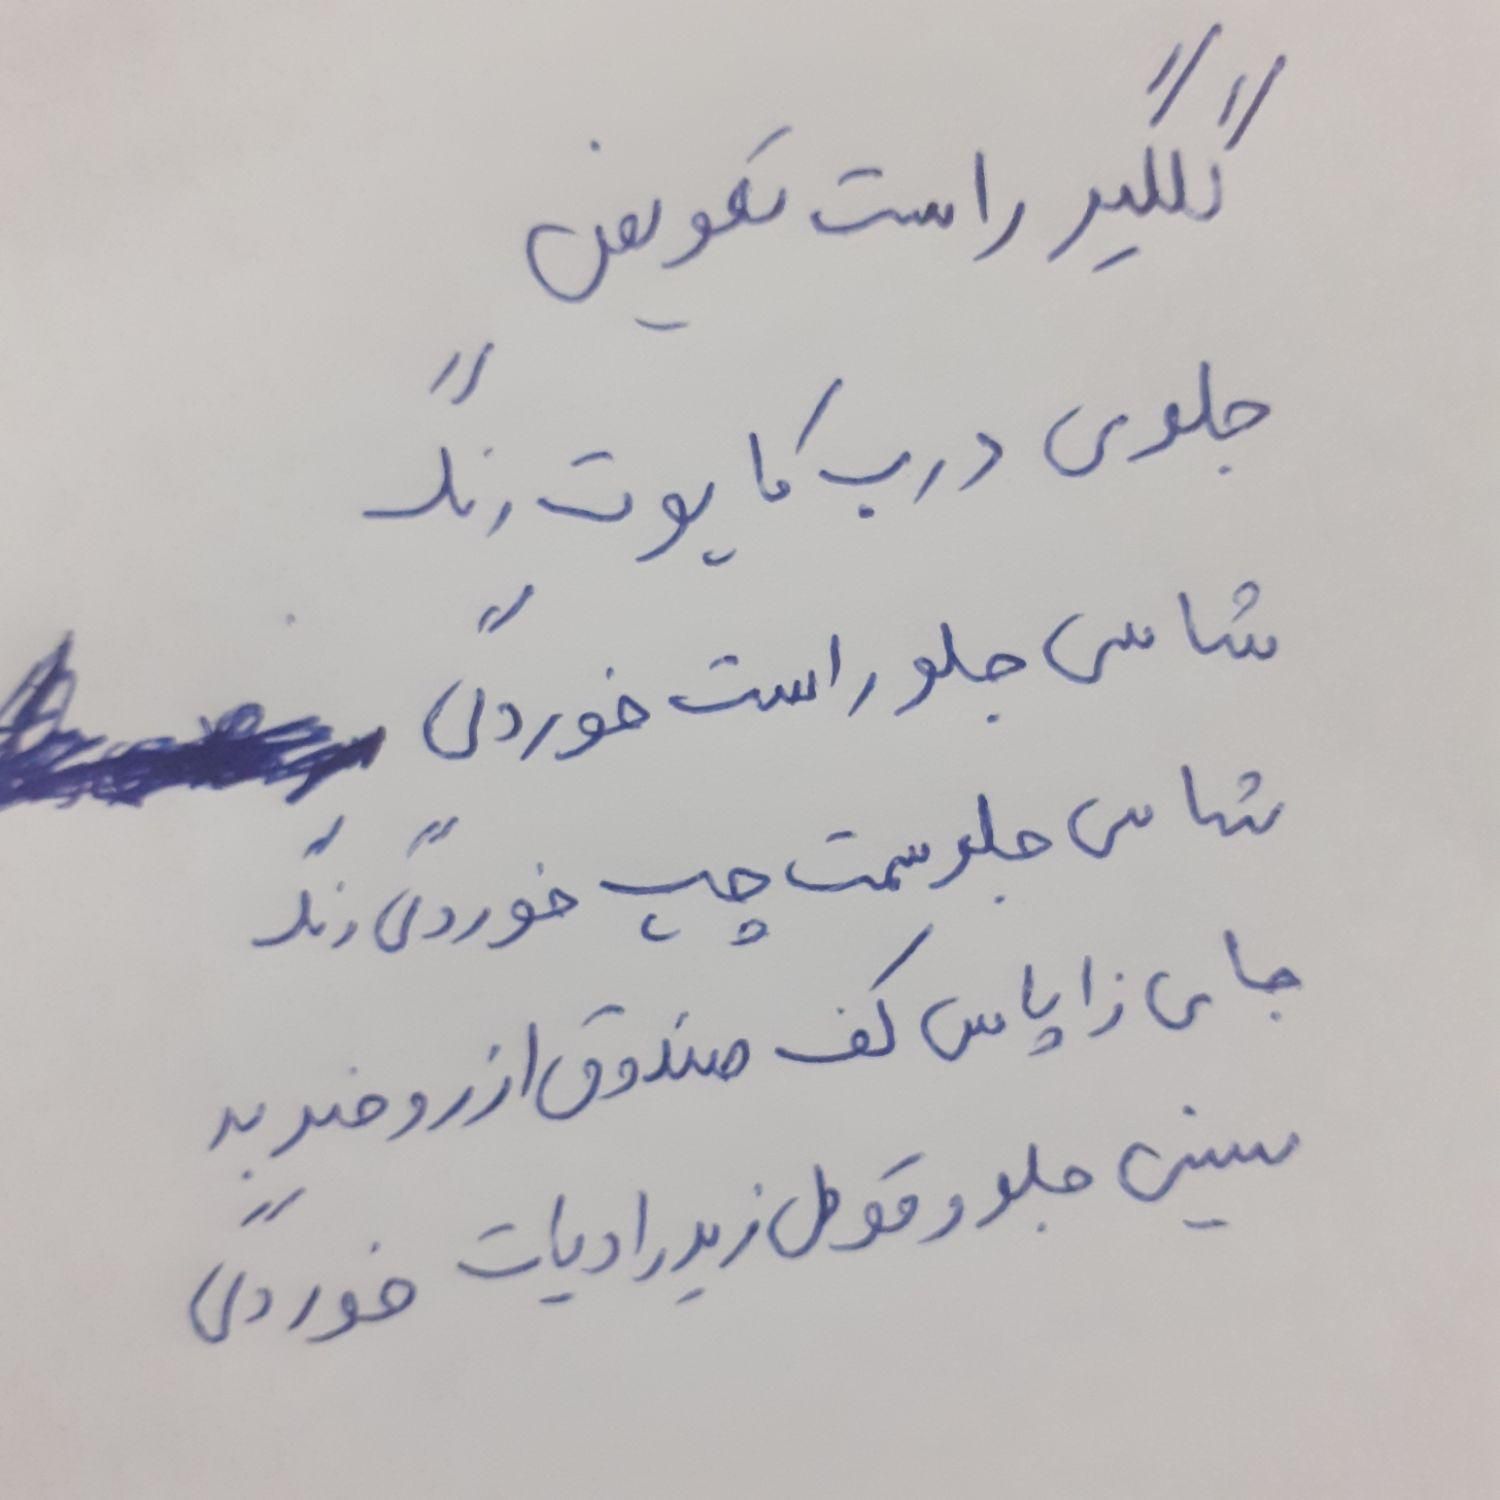 گلگیر راست تعویض
جلوی درب کاپوت رنگ
شاسی جلو راست خوردگی
شاسی جلو سمت چپ خوردگی رنگ
جای زاپاس کف صندوق از رو ضربه
سینی جلو و قوطی زیر رادیات خوردگی